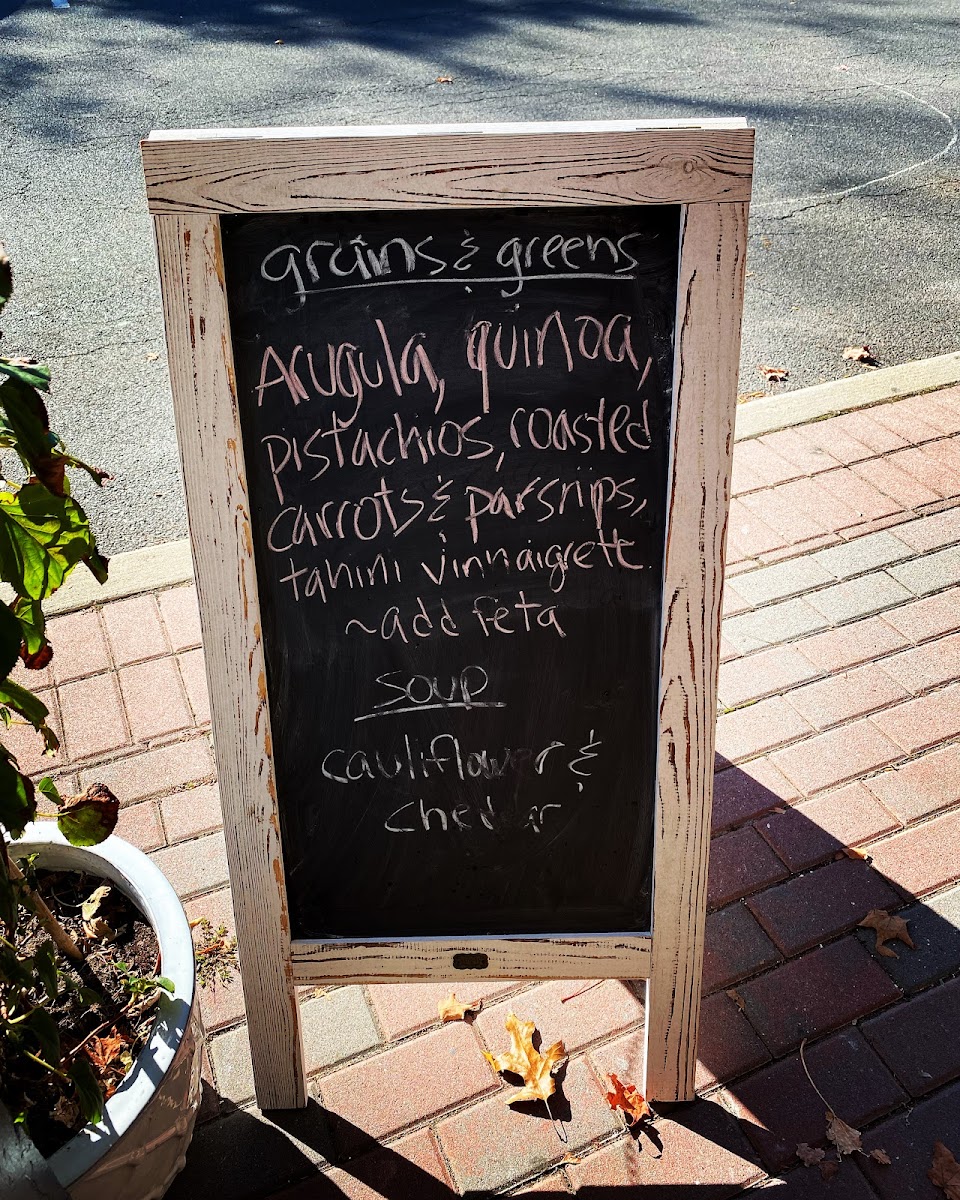 grains & greens
Arugula, quinoa,
pistachios, roasted
carrots & parsnips,
tahini vinnaigrette
~add feta
soup
cauliflower &
cheddar